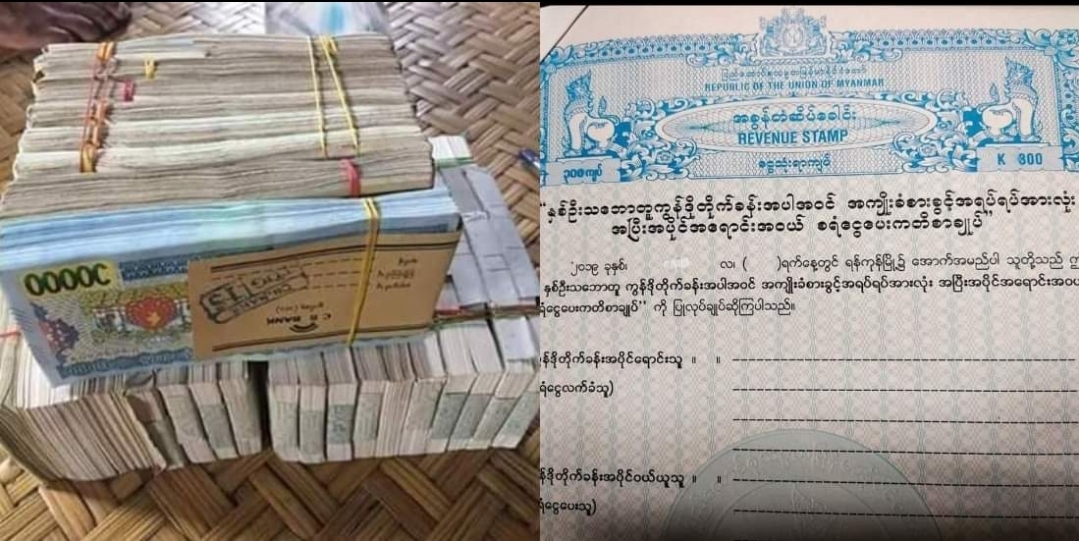 10000
C B BANK
ပြည်ထောင်စုသမ္မတမြန်မာနိုင်ငံတော်
REPUBLIC OF THE UNION OF MYANMAR
အခွန်တံဆိပ်ခေါင်း
REVENUE STAMP
၃၀၀ ကျပ်
K 300
"နှစ်ဦးသဘောတူကွန်ဒိုတိုက်ခန်းအပါအဝင် အကျိုးခံစားခွင့်အရပ်ရပ်အားလုံး
အပြီးအပိုင်အရောင်းအဝယ် စရံငွေပေးကတိစာချုပ်"
၂၀၁၉ ခုနှစ်၊ လ၊ ( )ရက်နေ့တွင် ရန်ကုန်မြို့၌ အောက်အမည်ပါ သူတို့သည်
နှစ်ဦးသဘောတူ ကွန်ဒိုတိုက်ခန်းအပါအဝင် အကျိုးခံစားခွင့်အရပ်ရပ်အားလုံး အပြီးအပိုင်အရောင်းအဝယ်
စရံငွေပေးကတိစာချုပ်" ကို ပြုလုပ်ချုပ်ဆိုကြပါသည်။
ကွန်ဒိုတိုက်ခန်းအပိုင်ရောင်းသူ ။ ။
(စရံငွေလက်ခံသူ)
ကွန်ဒိုတိုက်ခန်းအပိုင်ဝယ်ယူသူ ။ ။
(စရံငွေပေးသူ)